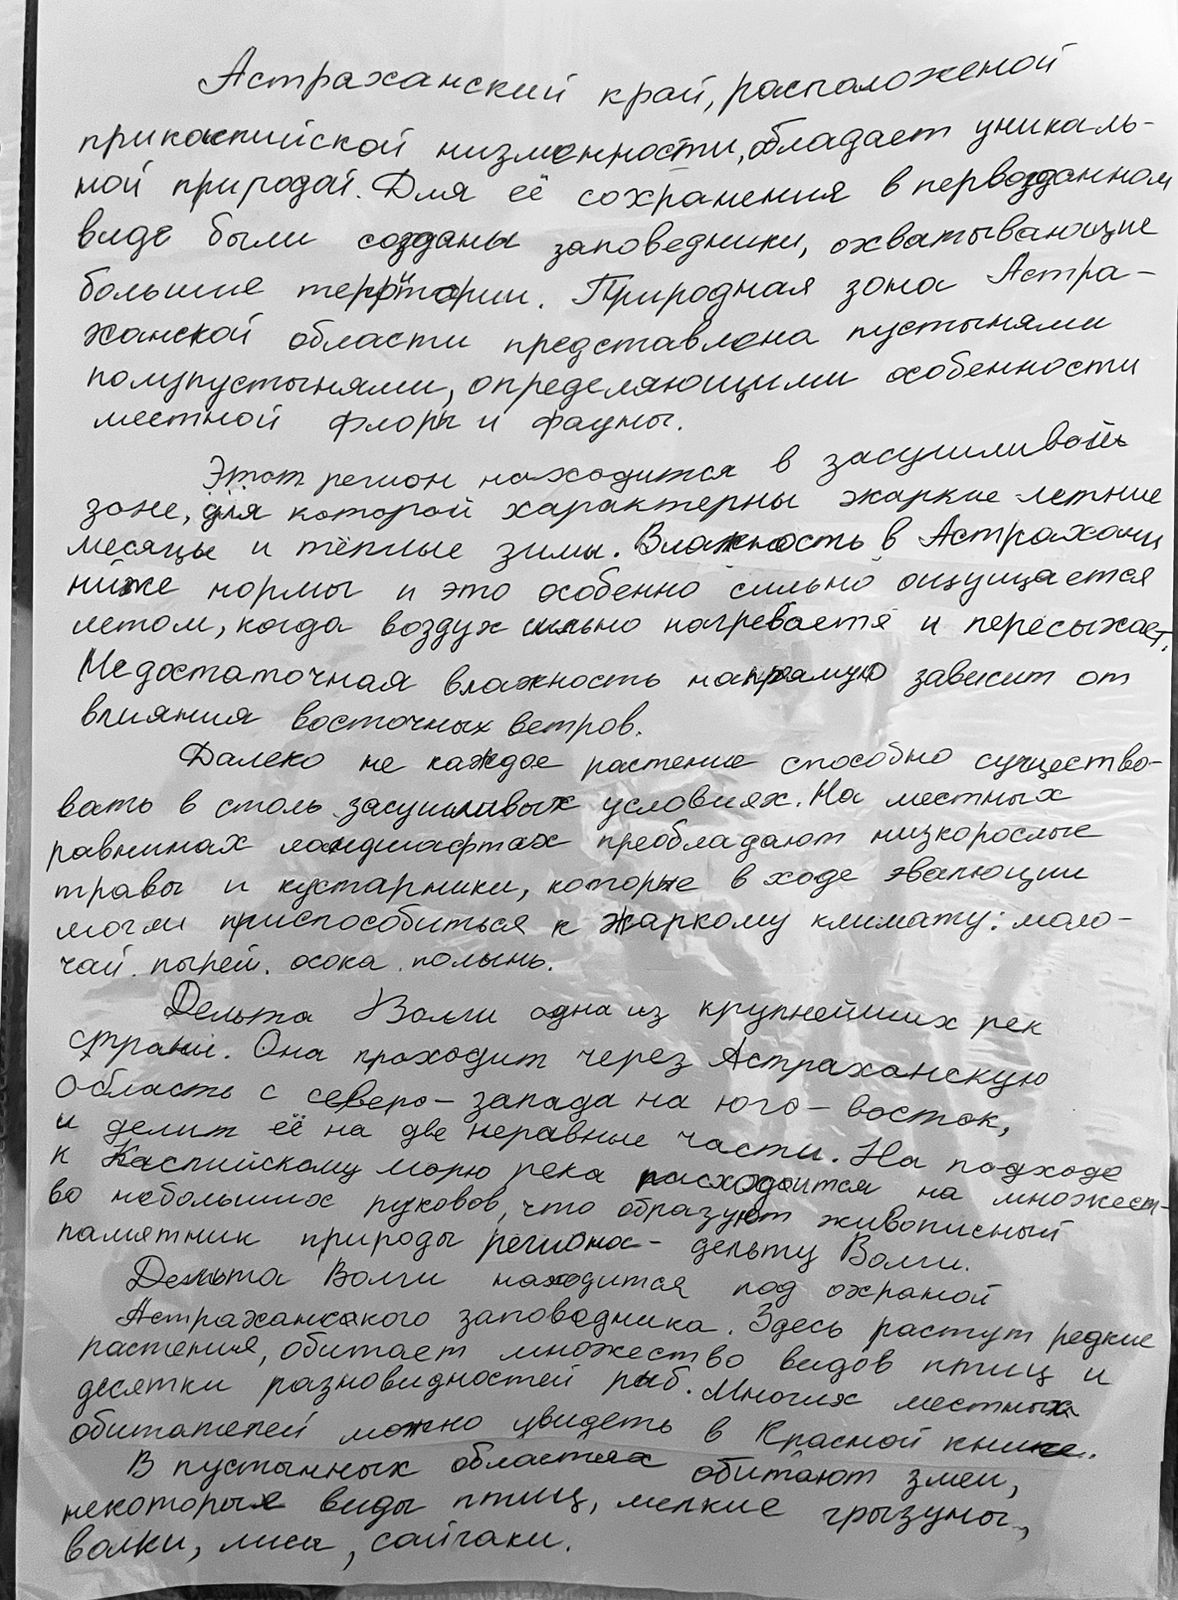 Астраханский край, расположеной
прикаспийской низменности, обладает уникаль-
ной природой. Для её сохранения в первозданном
виде были созданы заповедники, охватывающие
большие территории. Природная зона Астра-
ханской области представлена пустынями
полупустынями, определяющими особенности
местной флоры и фауны.
Этот регион находится в засушливой
зоне, для которой характерны жаркие летние
месяцы и тёплые зимы. Влажность в Астрахани
ниже нормы и это особенно сильно ощущается
летом, когда воздух сильно нагревается и пересыхает.
Недостаточная влажность напрямую зависит от
влияния восточных ветров.
Далеко не каждое растение способно существо-
вать в столь засушливых условиях. На местных
равнинах ландшафтах преобладают низкорослые
травы и кустарники, которые в ходе эвалюции
могли приспособиться к жаркому климату: моло-
чай, пырей, осока, полынь.
Дельта Волги одна из крупнейших рек
страны. Она проходит через Астраханскую
область с северо-запада на юго-восток,
и делит её на две неравные части. На подходе
к Каспийскому морю река расходится на множест-
во небольших руковов, что образуют живописный
памятник природы региона - дельту Волги.
Дельта Волги находится под охраной
Астраханского заповедника. Здесь растут редкие
растения, обитает множество видов птиц и
десятки разновидностей рыб. Многих местных
обитателей можно увидеть в Красной книге.
В пустынных областях обитают змеи,
некоторые виды птиц, мелкие грызуны,
волки, лисы, сайгаки.